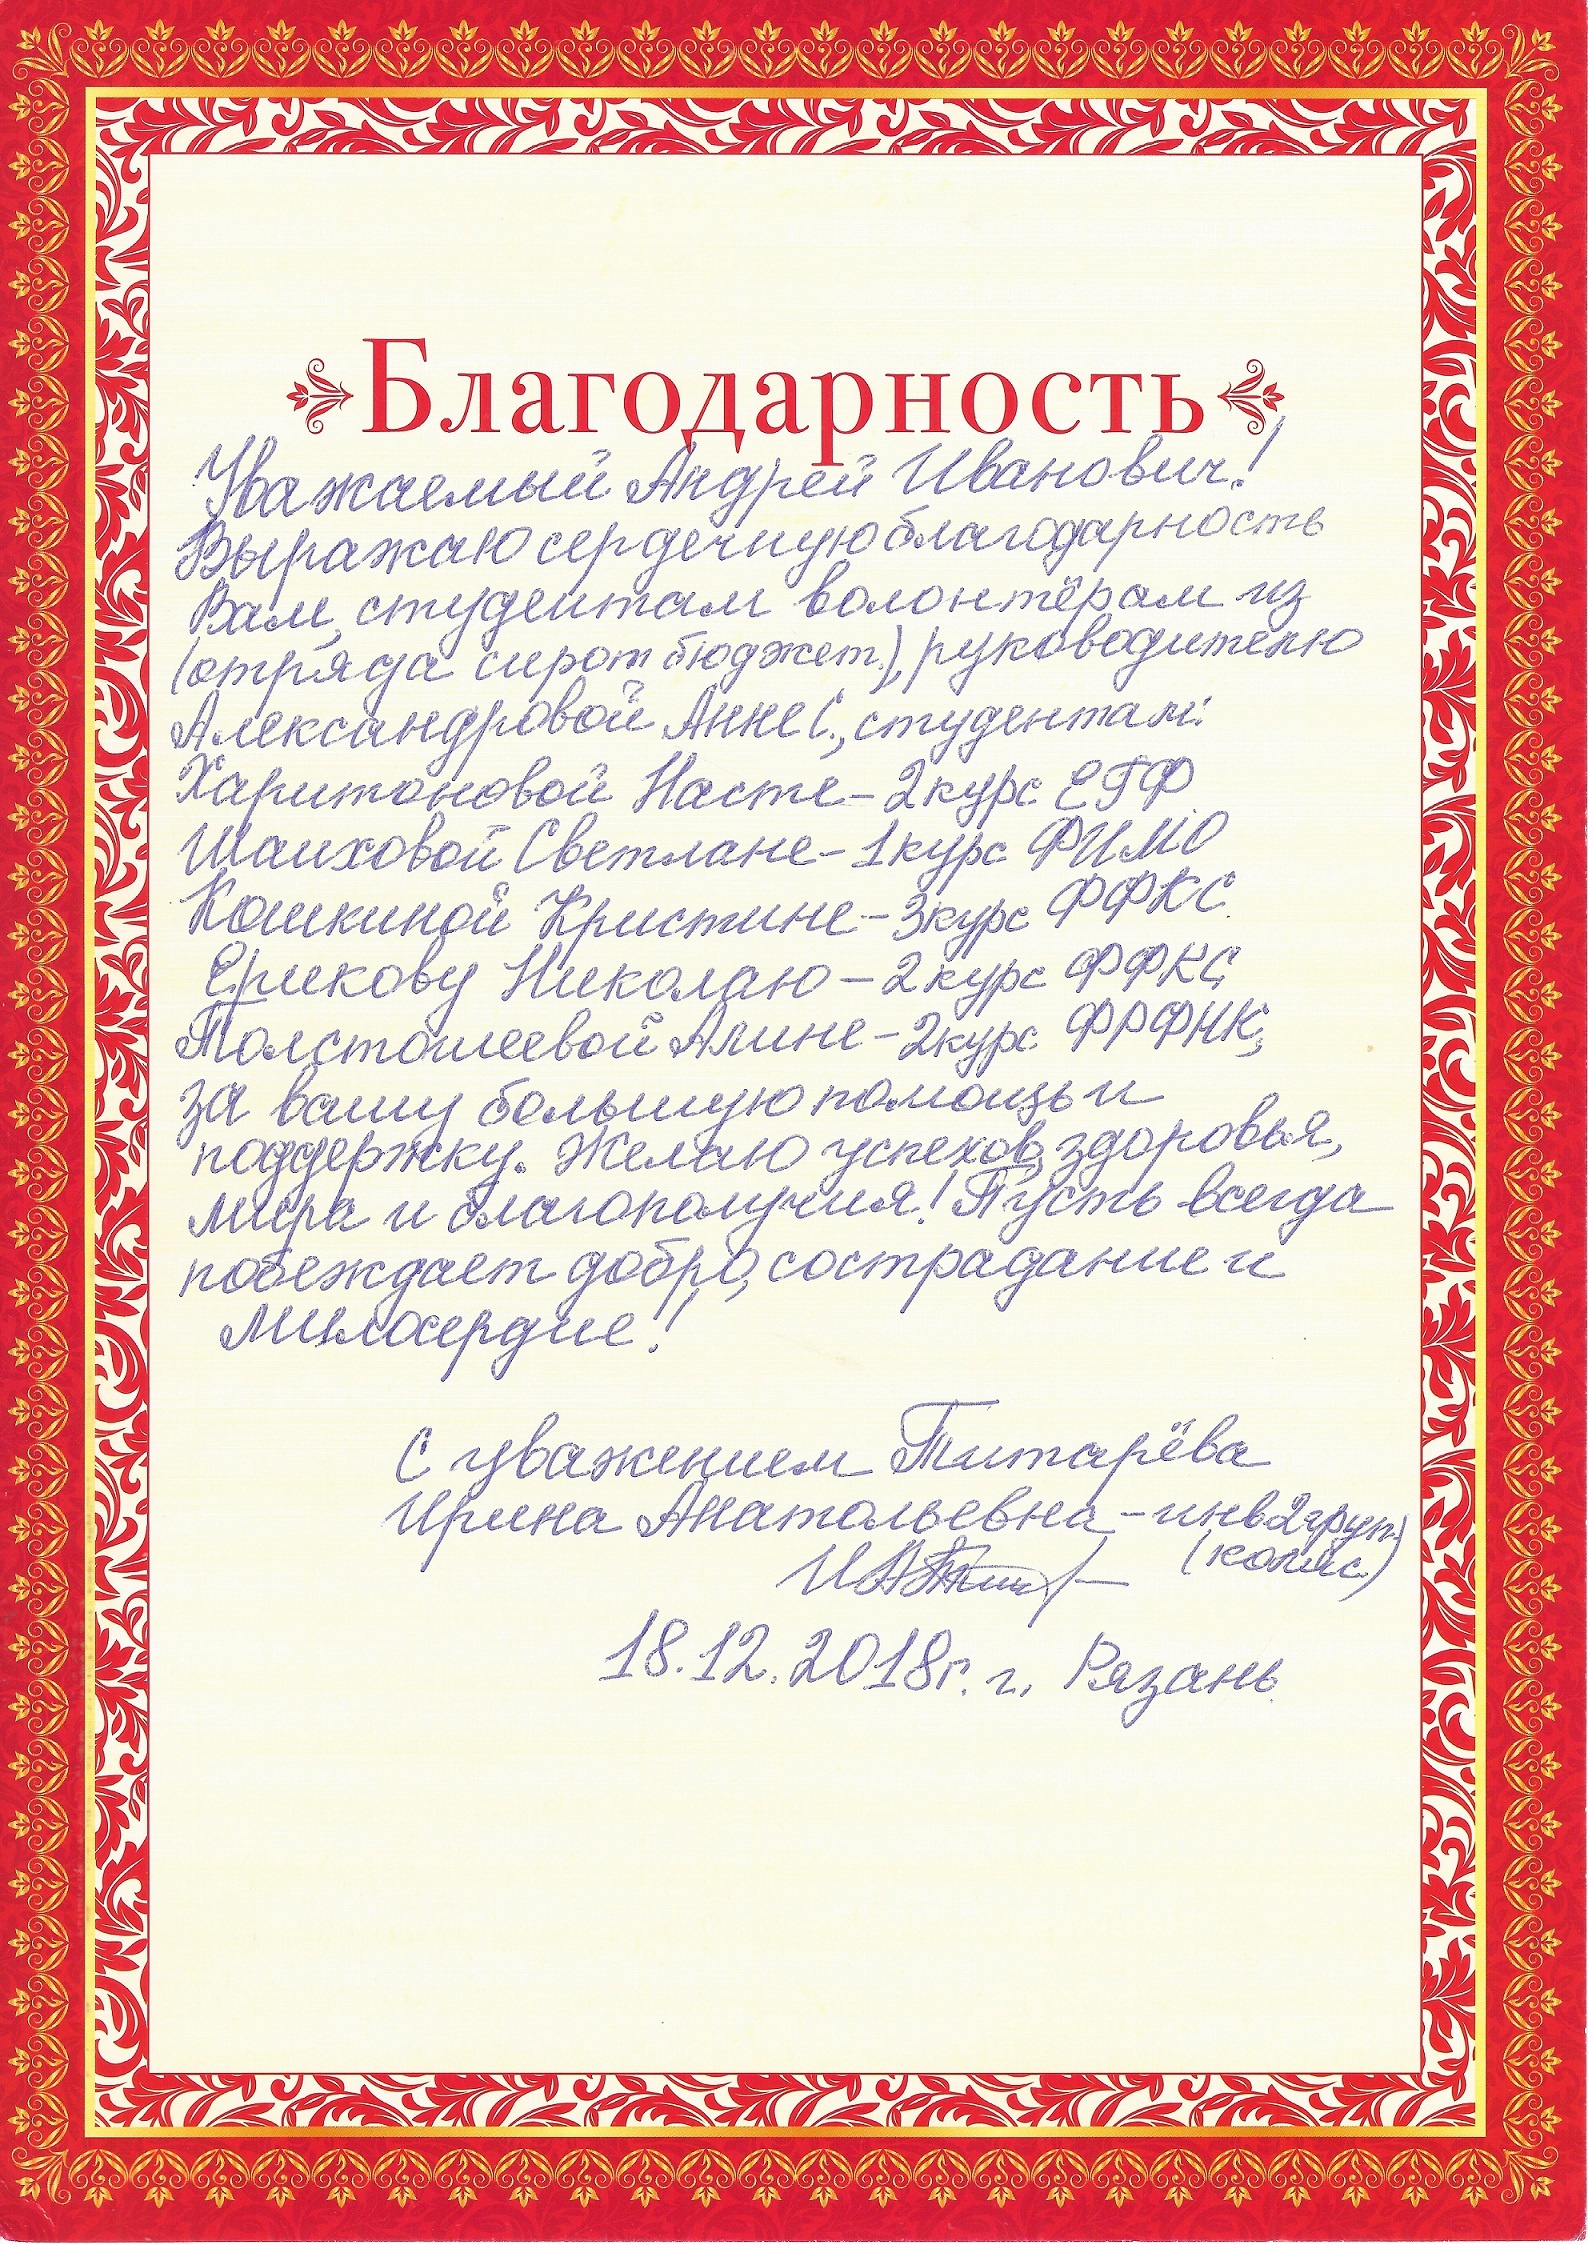 Благодарность
Уважаемый Андрей Иванович!
Выражаю сердечную благодарность
Вам, студентам волонтёрам из
(отряда сирот бюджет.), руководителю
Александровой Анне С., студентам:
Харитоновой Насте – 2 курс ЕГФ
Шаиховой Светлане – 1 курс ФИМО
Кошкиной Кристине – 3 курс ФФКС
Ерикову Николаю – 2 курс ФФКС
Толстошеевой Алине – 2 курс ФРФНК,
за вашу большую помощь и
поддержку. Желаю успехов, здоровья,
мира и благополучия! Пусть всегда
побеждает добро, сострадание и
милосердие!
С уважением Титарёва
Ирина Анатольевна – инв 2 груп.)
(коляс.)
18.12.2018г. г. Рязань